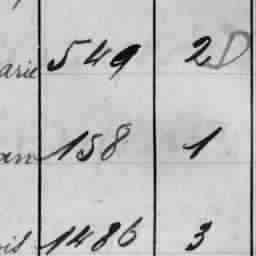 arie 549 2D
an 158 1
is 1486 3